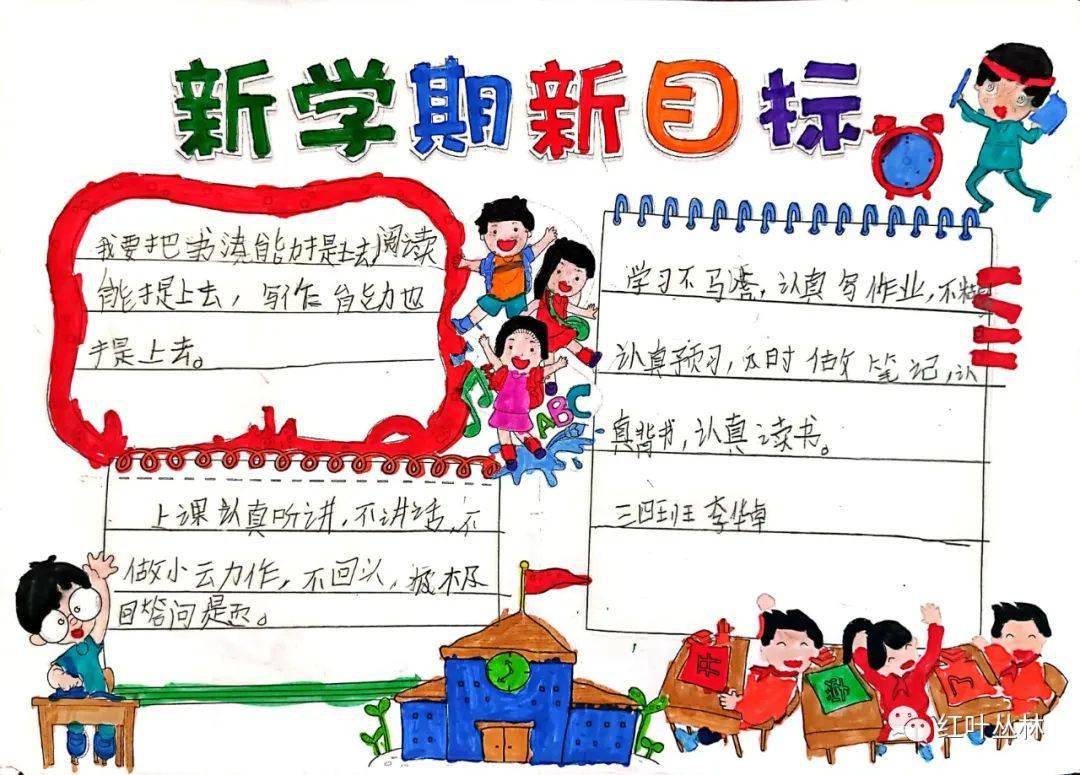 新学期新目标
我要把书读能力提上去阅读
能提上去，写作能力也
提上去。
学习不马虎，认真写作业，不
认真预习，及时做笔记，认
真背书，认真读书。
三四班 李华卓
上课认真听讲，不讲话，不
做小云力作，不回头，极极
回答问题。
ABC
红叶丛林